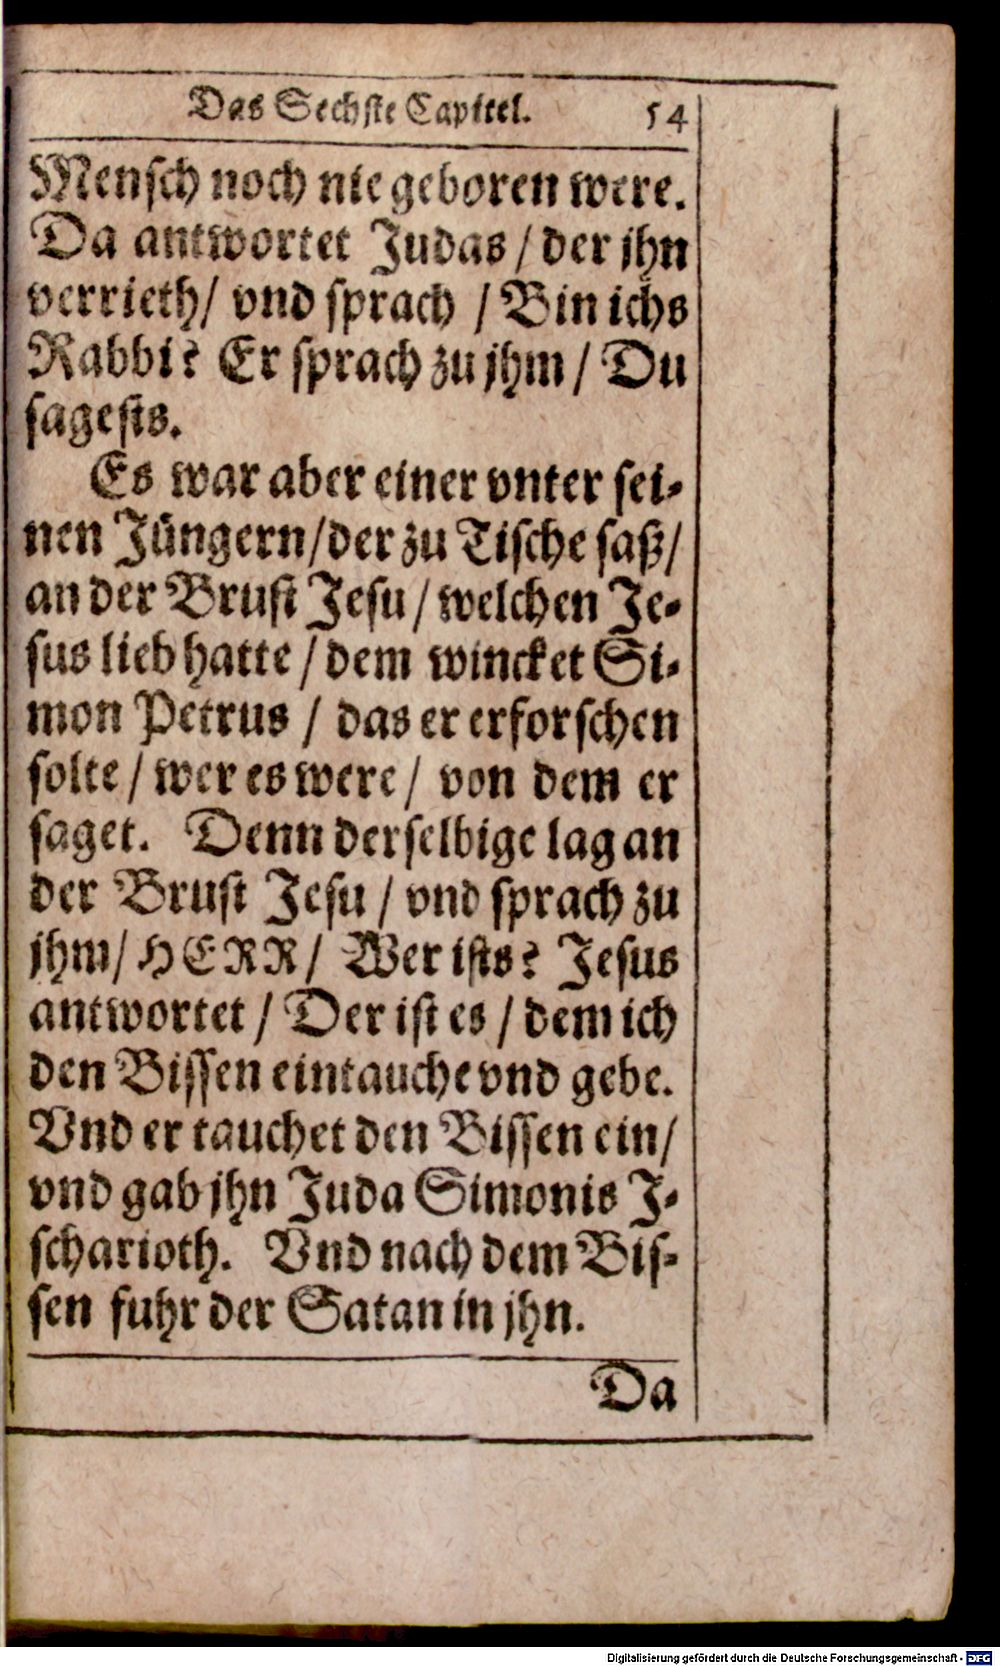 Das Sechste Capitel. 54
Mensch noch nie geboren were.
Da antwortet Judas / der jhn
verrieth / vnd sprach / Bin ichs
Rabbi? Er sprach zu jhm / Du
sagests.
Es war aber einer vnter sei-
nen Jüngern / der zu Tische saß /
an der Brust Jesu / welchen Je-
sus lieb hatte / dem wincket Si-
mon Petrus / das er erforschen
solte / wer es were / von dem er
saget. Denn derselbige lag an
der Brust Jesu / vnd sprach zu
jhm / HERR / Wer ists? Jesus
antwortet / Der ist es / dem ich
den Bissen eintauche vnd gebe.
Vnd er tauchet den Bissen ein /
vnd gab jhn Juda Simonis J-
scharioth. Vnd nach dem Bis-
sen fuhr der Satan in jhn.
Da
Digitalisierung gefördert durch die Deutsche Forschungsgemeinschaft - DFG